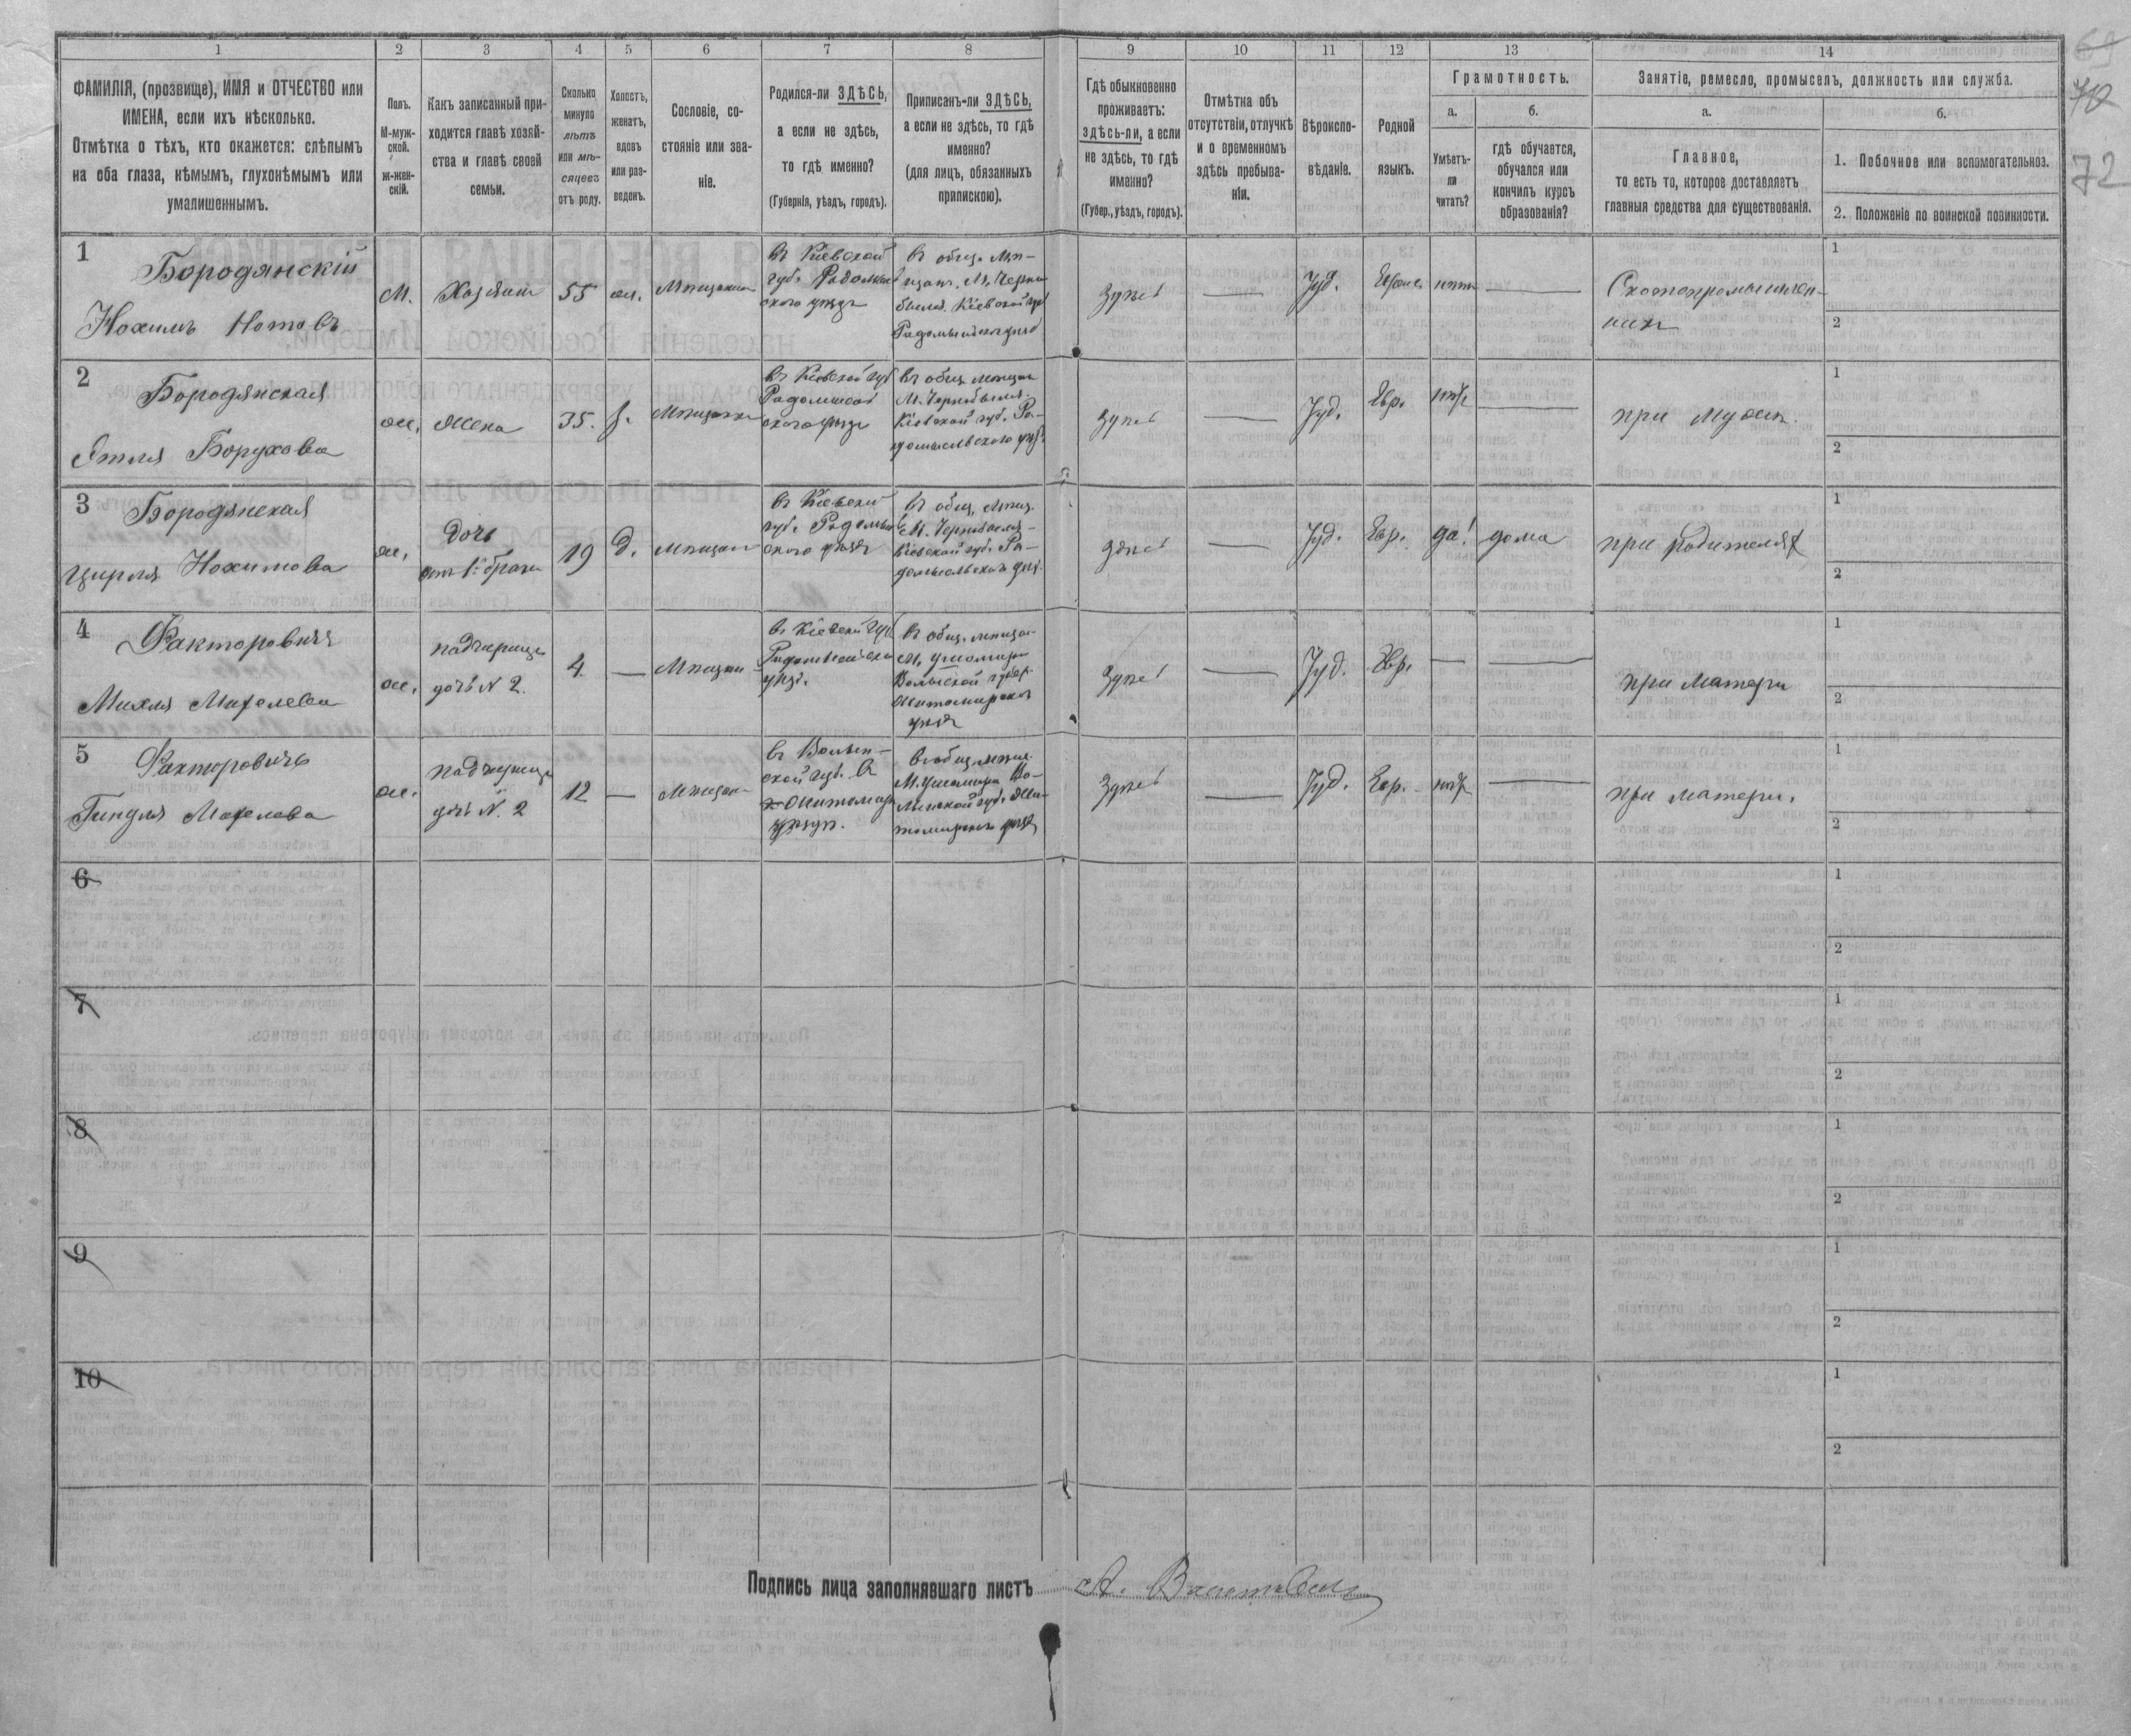 1 2 3 4 5 6 7 8 9 10 11 12 13 14
ФАМИЛІЯ, (прозвище), ИМЯ и ОТЧЕСТВО или
ИМЕНА, если ихъ нѣсколько.
Отмѣтка о тѣхъ, кто окажется: слѣпымъ
на оба глаза, нѣмымъ, глухонѣмымъ или
умалишеннымъ.
Полъ.
М-муж-
ской.
ж-жен-
скій.
Какъ записанный при-
ходится главѣ хозяй-
ства и главѣ своей
семьи.
Сколько
минуло
лѣтъ
или мѣ-
сяцевъ
отъ роду.
Холостъ,
женатъ,
вдовъ
или раз-
веденъ.
Сословіе, со-
стояніе или зва-
ніе.
Родился-ли ЗДѢСЬ,
а если не здѣсь,
то гдѣ именно?
(Губернія, уѣздъ, городъ).
Приписанъ-ли ЗДѢСЬ,
а если не здѣсь, то гдѣ
именно?
(для лицъ, обязанныхъ
припискою).
Гдѣ обыкновенно
проживаетъ:
здѣсь-ли, а если
не здѣсь, то гдѣ
именно?
(Губер., уѣздъ, городъ).
Отмѣтка объ
отсутствіи, отлучкѣ
и о временномъ
здѣсь пребыва-
ніи.
Вѣроиспо-
вѣданіе.
Родной
языкъ.
Грамотность.
а.
Умѣетъ-
ли
читать?
б.
гдѣ обучается,
обучался или
кончилъ курсъ
образованія?
Занятіе, ремесло, промыселъ, должность или служба.
а.
Главное,
то есть то, которое доставляетъ
главныя средства для существованія.
б.
1. Побочное или вспомогательное.
2. Положеніе по воинской повинности.
69
70
72
1
Бородянскій
Нохимъ Нотовъ
М.
Хозяинъ
55
ж.
Мѣщанинъ
въ Кіевской
губ.
ского уѣздѣ
въ общ. Мѣ-
щан. М. Черно-
Кіевской губ.
Здѣсь
—
Іуд.
нѣтъ
—
Скотопромышлен-
никъ
1
2
2
Бородянская
Этля Борухова
ж.
Жена
35.
Мѣщанка
въ Кіевской губ
ского уѣздѣ
въ общ. мѣщан
М. Чернобыля
Кіевской губ. Ра-
домысльского уѣз.
Здѣсь
—
Іуд.
Евр.
нѣтъ
—
при мужѣ.
1
2
3
Бородянская
Цирля Нохимова
ж.
Дочь
отъ 1го брака
19
д.
въ Кіевской
губ.
ского уѣздѣ
въ общ. мѣщ.
М. Чернобыля
Кіевской губ. Ра-
домысльскомъ уѣз.
здѣсь
—
Іуд.
Евр.
да!
дома
при родителяхъ
1
2
4
Факторовичъ
Михля
ж.
падчерица
дочь № 2.
4
—
въ Кіевской губ
уѣзд.
въ общ. мѣщан
М. Ушомира
Волынской губер.
Житомирскомъ
уѣздѣ
Здѣсь
—
Іуд.
Евр.
—
—
при матери
1
2
5
Факторовичъ
Гиндля
ж.
падчерица
дочь №. 2
12
—
въ Волын-
ской губ. въ
въ общ. мѣщ.
М. Ушомира Во-
лынской губ. Жи-
томирскомъ уѣздѣ
Здѣсь
—
Іуд.
Евр.
нѣтъ
—
при матери.
1
2
6
1
2
7
1
2
8
1
2
9
1
2
10
1
2
Подпись лица заполнявшаго листъ